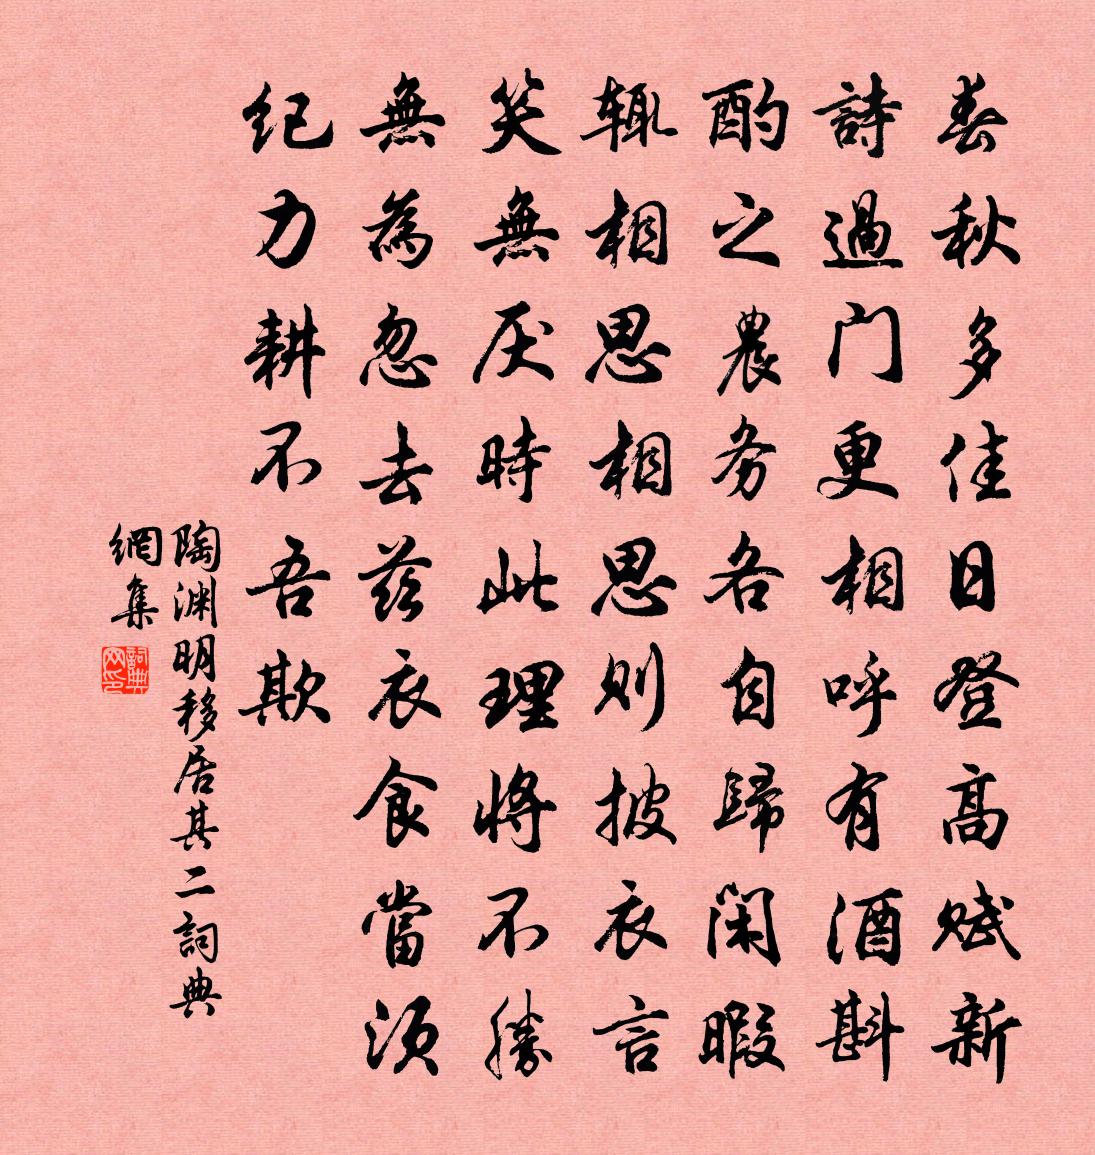 春秋多佳日登高赋新
詩過门更相呼有酒斟
酌之農务各自歸閑暇
辄相思相思则披衣言
笑無厌時此理將不勝
無為忽去兹衣食當須
纪力耕不吾欺
陶渊明移居其二詞典
網集
詞典
网印